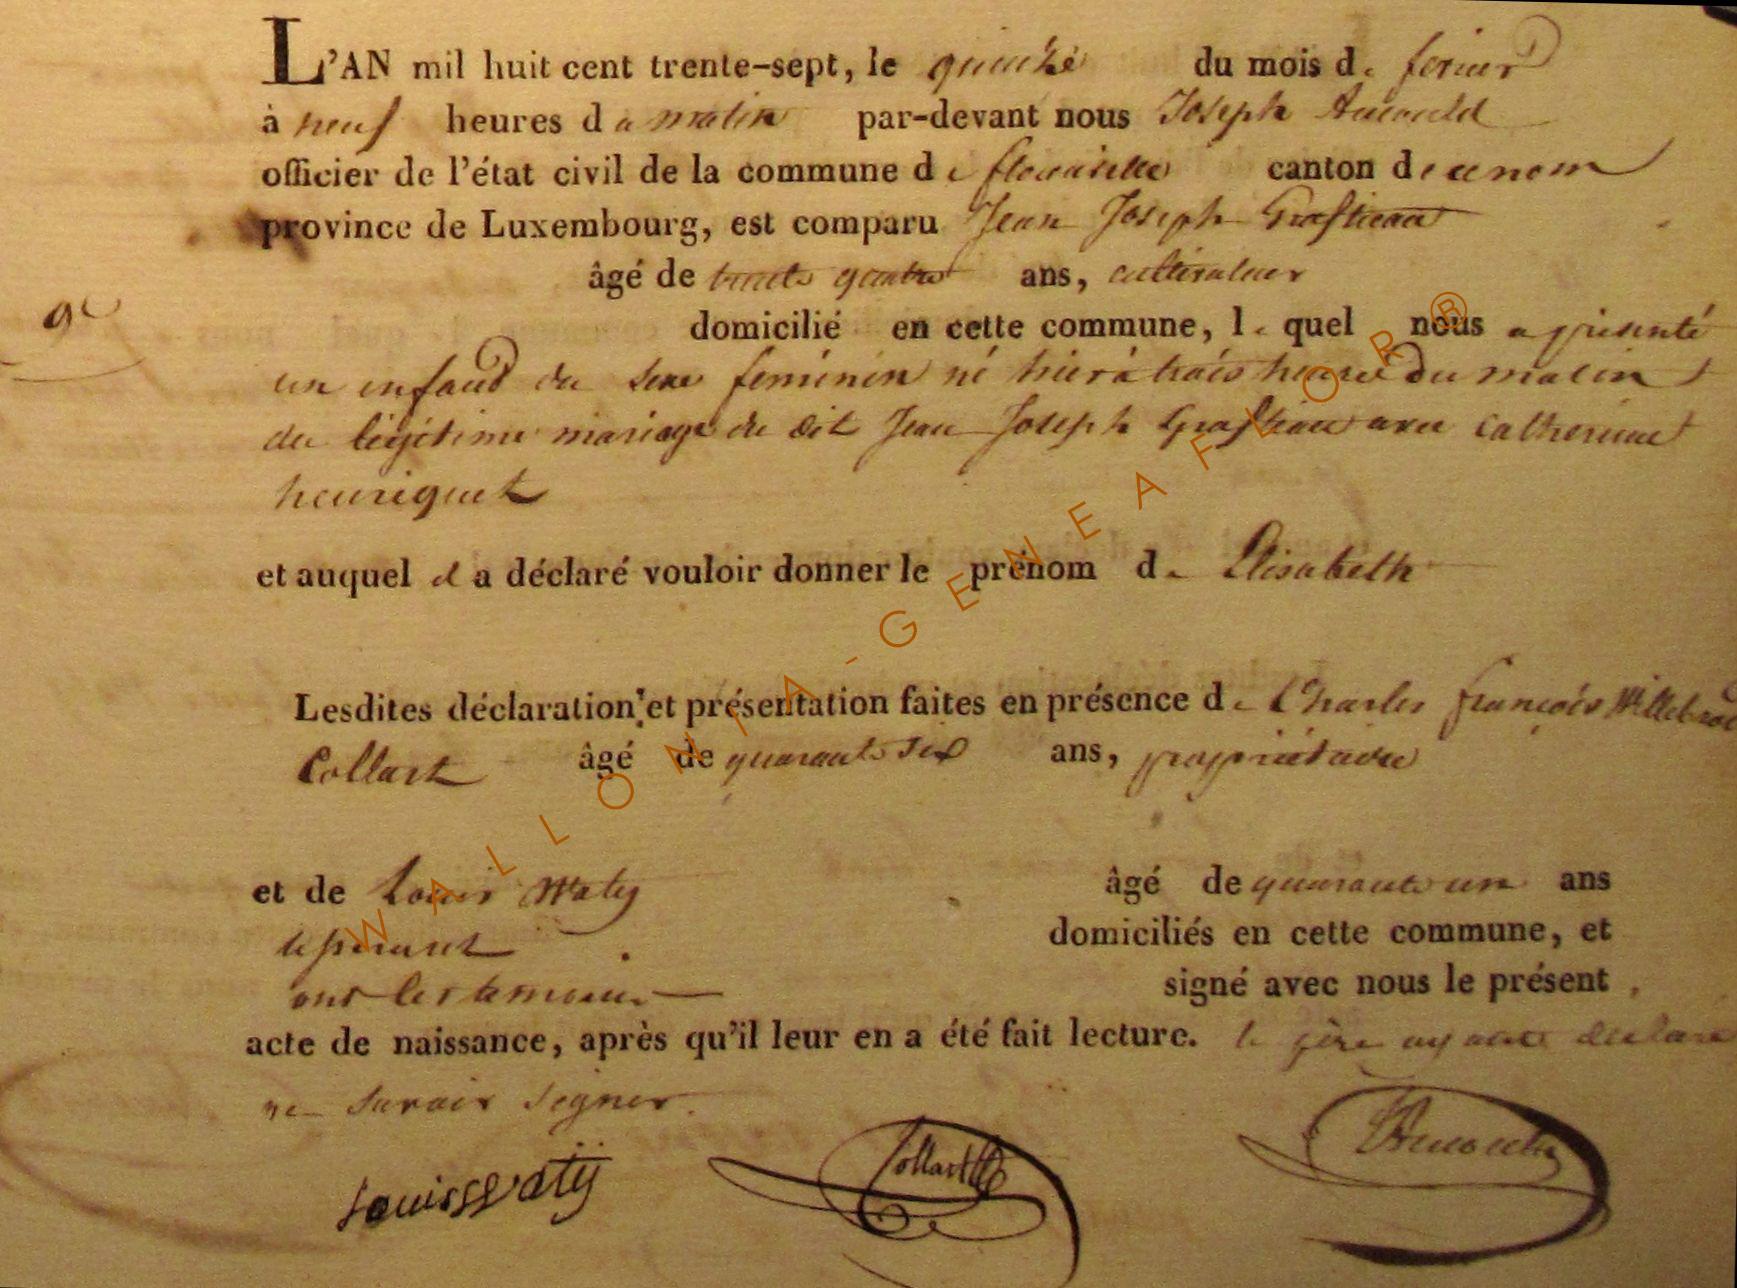 L'AN mil huit cent trente-sept, le quinze du mois de fevrier
à neuf heures du matin par-devant nous Joseph
officier de l'état civil de la commune de canton de
province de Luxembourg, est comparu Jean Joseph
9e
âgé de trente quatre ans, cultivateur
domicilié en cette commune, le quel nous a présenté
un enfant du sexe féminin né hier à trois heures du matin
du légitime mariage du dit Jean Joseph avec Catherine
henriquet
et auquel il a déclaré vouloir donner le prénom de Elisabeth
Lesdites déclaration et présentation faites en présence de Charles françois
Collart âgé de quarante six ans, propriétaire
et de Louis Waty âgé de quarante un ans
domiciliés en cette commune, et
ont les temoins signé avec nous le présent
acte de naissance, après qu'il leur en a été fait lecture. le père ayant déclaré
ne savoir signer.
Louis Watÿ Collart
WALLONIA-GENEAFLOR®